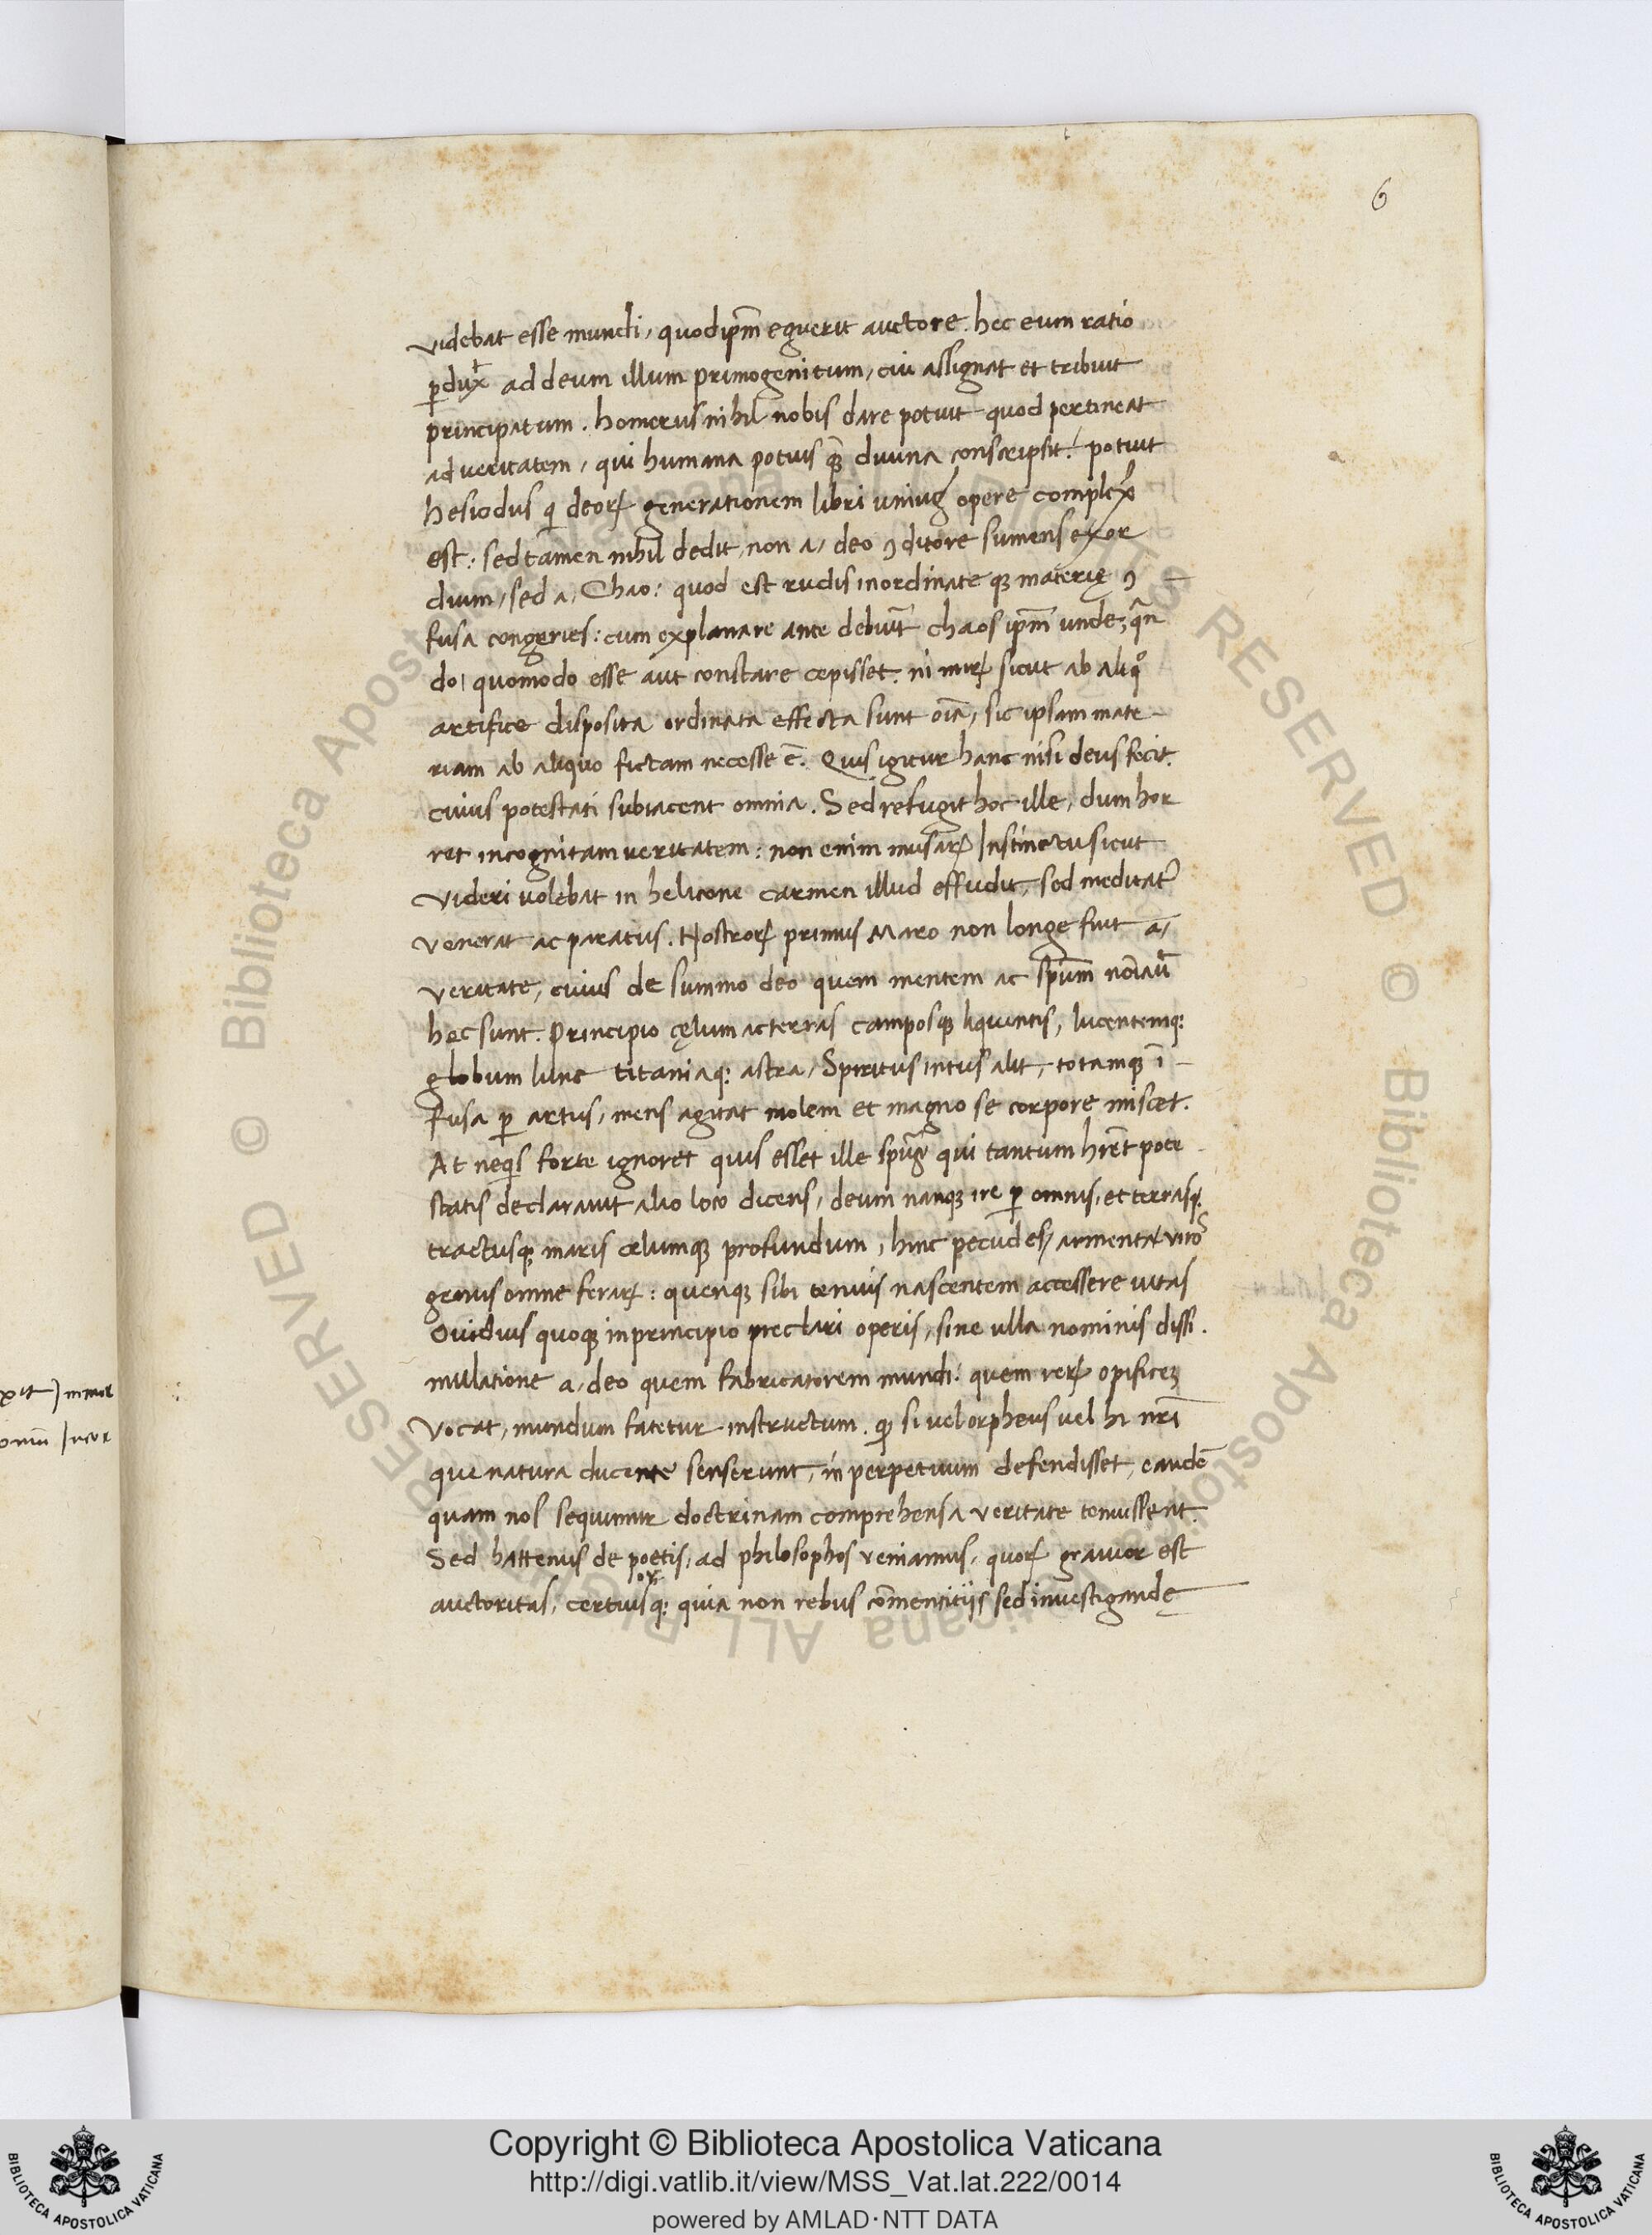 6
videbat esse mundi, quod ipm̃ eguerit auctore. hec eum ratio
ꝑdux̃ ad deum illum primogenitum, cui assignat et tribuit
principatum. homerus nihil nobis dare potuit quod pertineat
ad veritatem, qui humana potius qꝫ divina conscripsit. potuit
hesiodus qi deorꝝ generationem libri uniuꝰ opere complexꝰ
est: sed tamen nihil dedit, non a, deo ꝯditore sumens exor
dium, sed a, Chao: quod est rudis inordinate qꝫ materię ꝯ
fusa congeries: cum explanare ante debuit̃ chaos ipm̃ unde, qñ
do, quomodo esse aut constare cepisset. ni mirꝝ sicut ab aliqº
artifice disposita ordinata effecta sunt oĩa, sic ipsam mate-
riam ab aliquo fictam necesse ē. Quis igitur hanc nisi deus fecit.
cuius potestati subiacent omnia. Sed refugit hoc ille, dum hor
ret incognitam veritatem: non enim musarꝝ Instinctu sicut
videri volebat in helicone carmen illud effudit, sed meditatꝰ
venerat ac paratus. Nostrorꝝ primus Maro non longe fuit a,
veritate, cuius de summo deo quem mentem ac spũm noĩaũ
hec sunt. Principio cęlum ac terras camposqꝫ liquentis, lucentemq:
globum lune titaniaq: astra, Spiritus intus alit, totamqꝫ ĩ-
fusa ꝑ artus, mens agitat molem et magno se corpore miscet.
At neqis forte ignoret quis esset ille spũs qui tantum hrẽt pote
statis declaravit alio loco dicens, deum nanqꝫ ire ꝑ omnis, et terrasqꝫ
tractusqꝫ maris celumqꝫ profundum, hinc pecudes, armenta, viros
genus omne ferarꝝ: quenqꝫ sibi tenuis nascentem accessere vitas
Ovidius quoqꝫ in principio preclari operis, sine ulla nominis dissi.
mulatione a, deo quem fabricatorem mundi: quem rerꝝ opificeꝫ
vocat, mundum fatetur instructum. qꝫ si vel orpheus vel hi nr̃i
que natura ducente senserunt, in perpetuum defendisset, eandē
quam nos sequimur doctrinam comprehensa veritate tenuissent.
Sed hattenus de poetis, ad philosophos veniamus, quorꝝ gravior est
auctoritas, certiusq: quia non rebus cõmentitijs sed investigandę
or
Copyright © Biblioteca Apostolica Vaticana
http://digi.vatlib.it/view/MSS_Vat.lat.222/0014
powered by AMLAD·NTT DATA
BIBLIOTECA APOSTOLICA VATICANA
BIBLIOTECA APOSTOLICA VATICANA
© Biblioteca Apostolica Vaticana ALL RIGHTS RESERVED
© Biblioteca Apostolica Vaticana ALL RIGHTS RESERVED